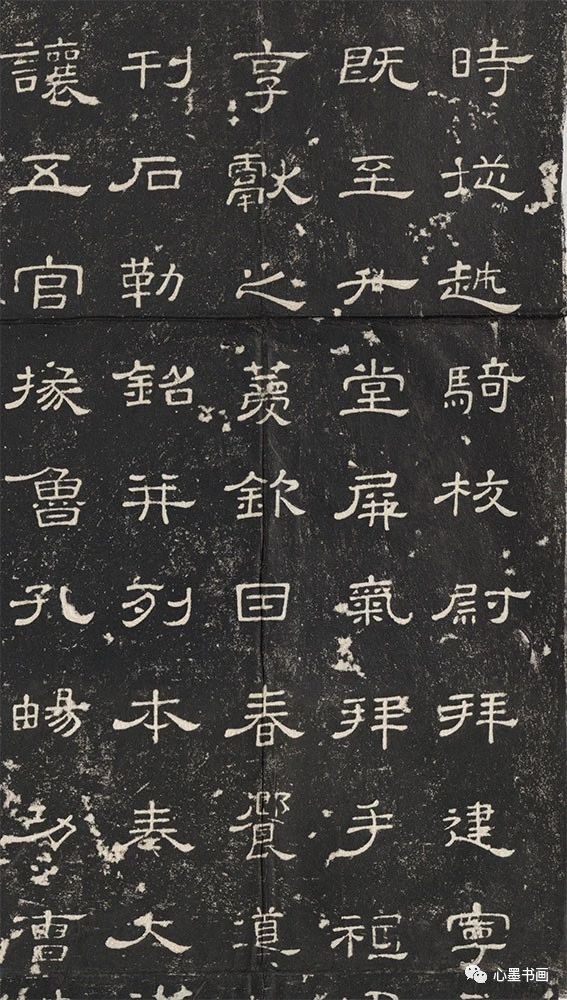 時從越騎校尉拜建寧
既至升堂屏氣拜手祗
享獻之薦欽因春饗導
刊石勒銘并列本奏大
讓五官掾魯孔暢功曹
心墨书画